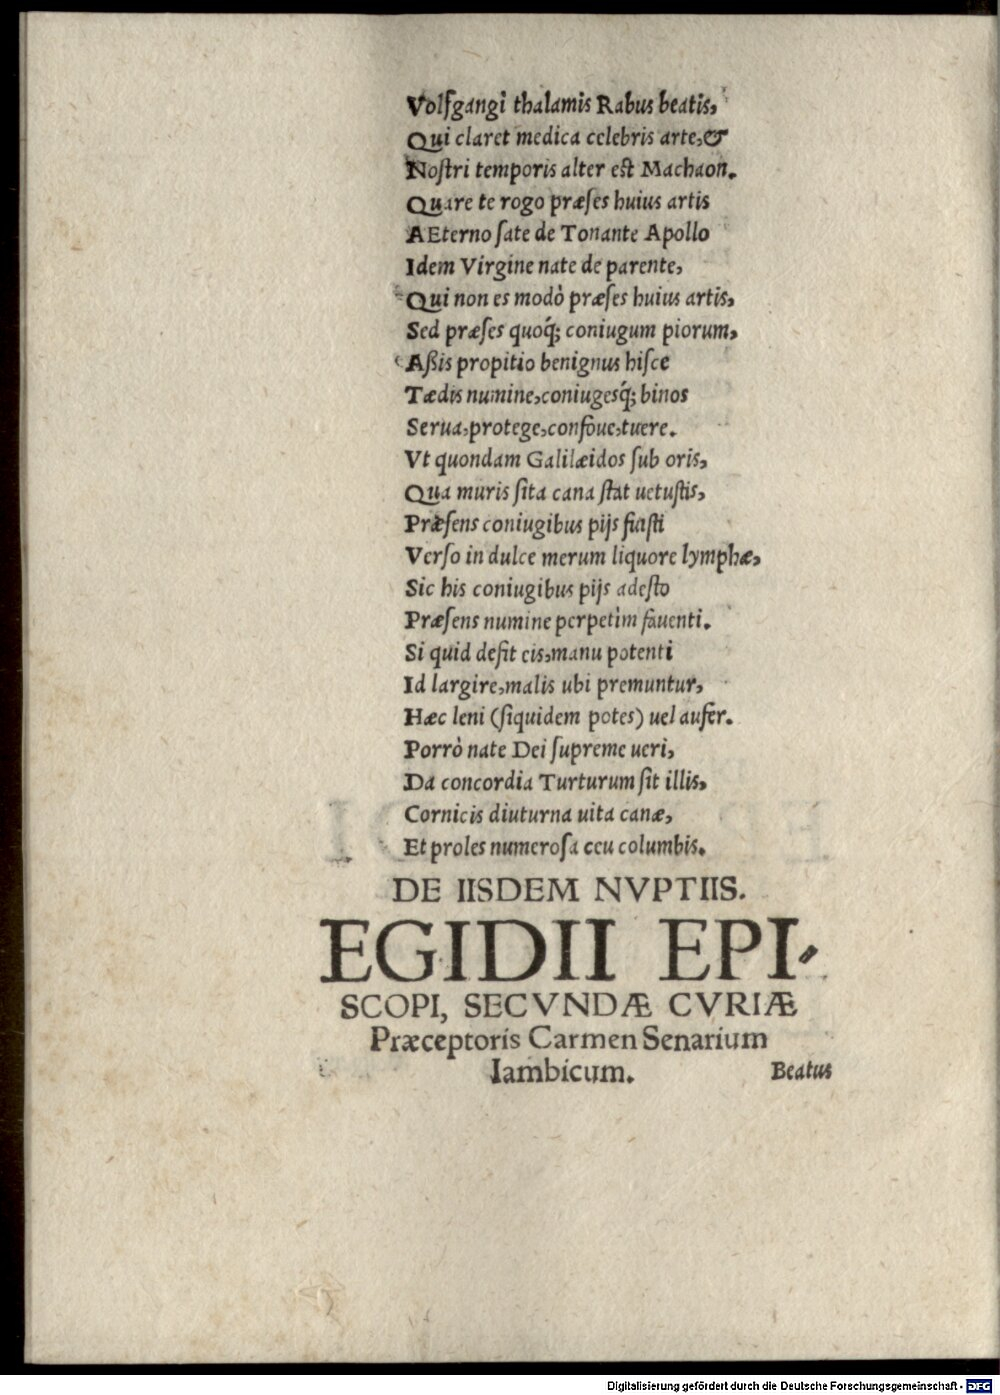 Volfgangi thalamis Rabus beatis,
Qui claret medica celebris arte, &
Noſtri temporis alter eſt Machaon.
Quare te rogo præſes huius artis
AEterno ſate de Tonante Apollo
Idem Virgine nate de parente,
Qui non es modò præſes huius artis,
Sed præſes quoq́; coniugum piorum,
Aßis propitio benignus hiſce
Tædis numine, coniugesq́; binos
Serua, protege, confoue, tuere.
Vt quondam Galilæidos ſub oris,
Qua muris ſita cana ſtat uetuſtis,
Præſens coniugibus pijs fuiſti
Verſo in dulce merum liquore lymphæ,
Sic his coniugibus pijs adeſto
Præſens numine perpetìm fauenti.
Si quid deſit eis, manu potenti
Id largire, malis ubi premuntur,
Hæc leni (ſiquidem potes) uel aufer.
Porrò nate Dei ſupreme ueri,
Da concordia Turturum ſit illis,
Cornicis diuturna uita canæ,
Et proles numeroſa ceu columbis.
DE IISDEM NVPTIIS.
EGIDII EPI-
SCOPI, SECVNDÆ CVRIÆ
Præceptoris Carmen Senarium
Iambicum.
Beatus
Digitalisierung gefördert durch die Deutsche Forschungsgemeinschaft - DFG